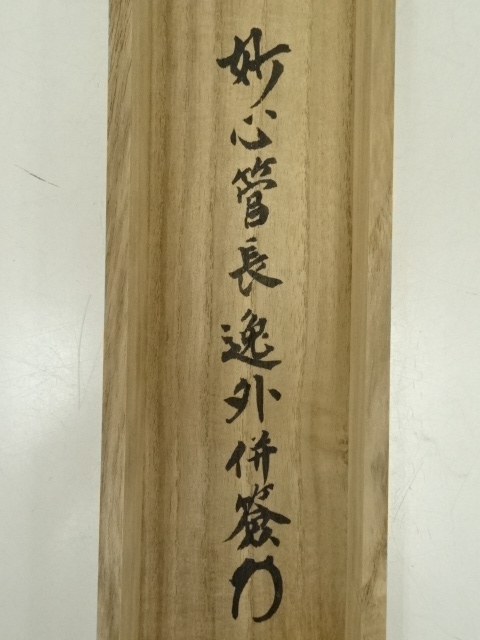 妙心管長逸外併簽